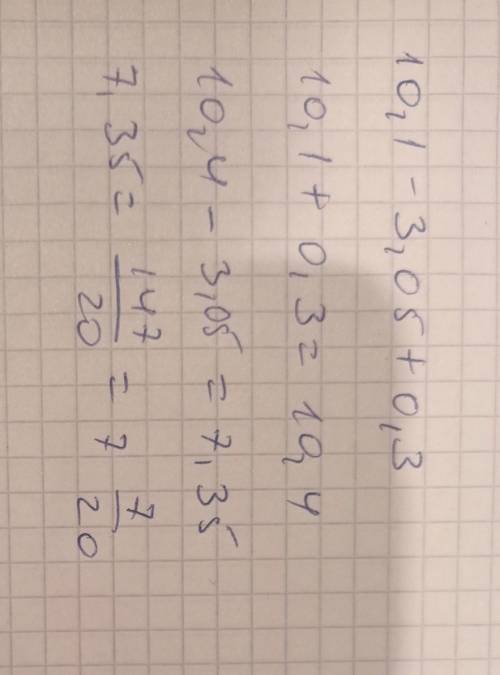 10,1 - 3,05 + 0,3
10,1 + 0,3 = 10,4
10,4 - 3,05 = 7,35
7,35 = 147/20 = 7 7/20